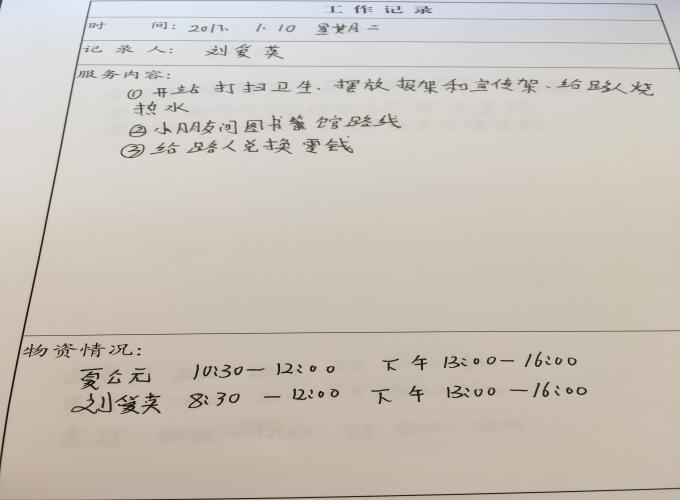 工作记录
时 间: 2017. 1.10 星期二
记录人: 刘爱英
服务内容:
①开站 打扫卫生、摆放报架和宣传架、给路人烧
热水
②小朋友问图书馆路线
③给路人兑换零钱
物资情况:
夏公元 10:30—12:00 下午 13:00—16:00
刘爱英 8:30 —12:00 下午 13:00—16:00